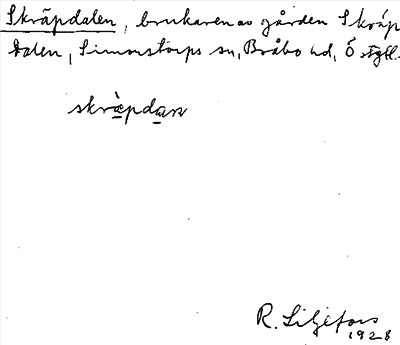 Skräpdalen, brukaren av gården Skräp
dalen, Simonstorps sn, Bråbo hd, Östgtl.
skræ̀pdan
R. Liljefors
1928